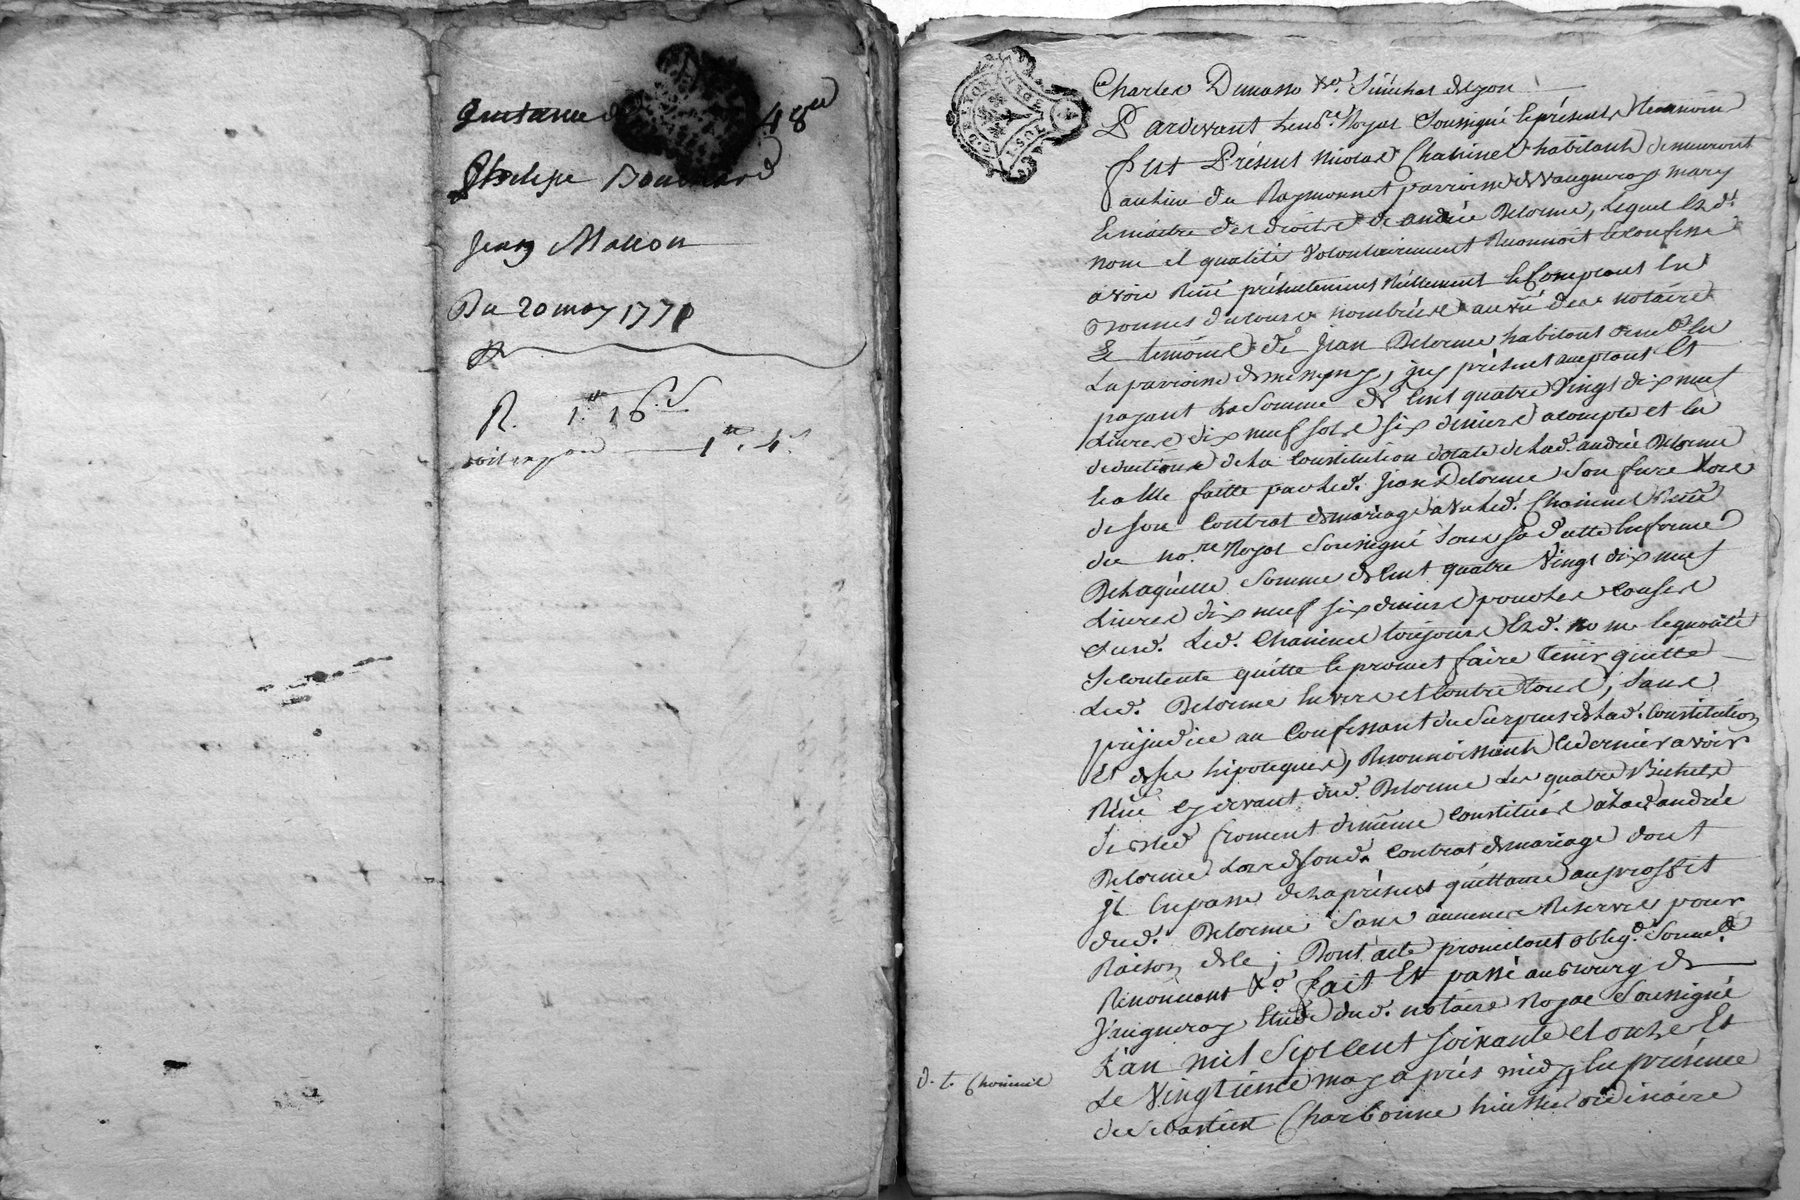 quittance de 48ll
Phelipe Bouchard
Jean Maleon
Du 20 may 1771
R. 1ll 16s
1ll. 4s
Charles Demasso Sénéchal de Lyon
Pardevant le no.re Royal Soussigné et présents les témoins
fut Présent Nicolas Chainel habitant demeurant
au lieu du Raymonnet parroisse de Vaugneray mary
et maitre des droits de andrée Delorme, lequel ez d.
nom et qualité volontairement Reconnoit et confesse
avoir Reçu présentement Réellement et Comptant en
nombrées au vu des notaire
et temoins de Jean Delorme habitant en
la parroisse de messimy, icy présent acceptant et
payant la Somme de Cent quatre Vingt dix neuf
Livres dix neuf sols six deniers acompte et en
deduction de la Constitution dotale de lad. andrée Delorme
a elle faitte par led. Jean Delorme Son frere Lors
de son Contrat de mariage avec led. Chainel Reçu
du no.re Royal Soussigné sous sa datte en forme
De laquelle Somme de Cent quatre Vingt dix neuf
Livres dix neuf six deniers pour les causes
Led. Chainel toujours ez d. nom et qualité
Se contente quitte et promet faire tenir quitte
Led. Delorme envers et contre tous, sans
préjudice au Confessant du Surplus de lad. Constitution
Et de ses hipoteques, Reconnoissant ce dernier avoir
Reçu cy devant dud. Delorme Les quatre Bichets
de bled froment de même constitués a lad. andrée
Delorme Lors de sond. Contrat de mariage dont
il en passe de la présente quittance au proffit
dud. Delorme Sans aucunes Reserves pour
Raison de ce; Dont acte promettant oblig.t Soumett.t
Renonceant &.a fait Et passé au bourg de
Vaugneray Etude dud. notaire Royal Soussigné
L'an mil Sept cent soixante et onze Et
Le Vingtieme may après midy, en presence
de Sebastien Charbonne huissier ordinaire
d. t. Chainel